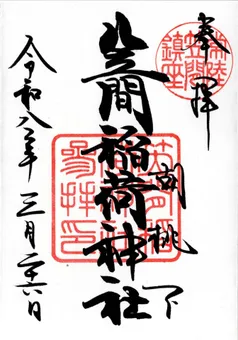 奉拝
常陸
笠間
鎮座
胡桃下
笠間稲荷神社
令和八年三月二十六日